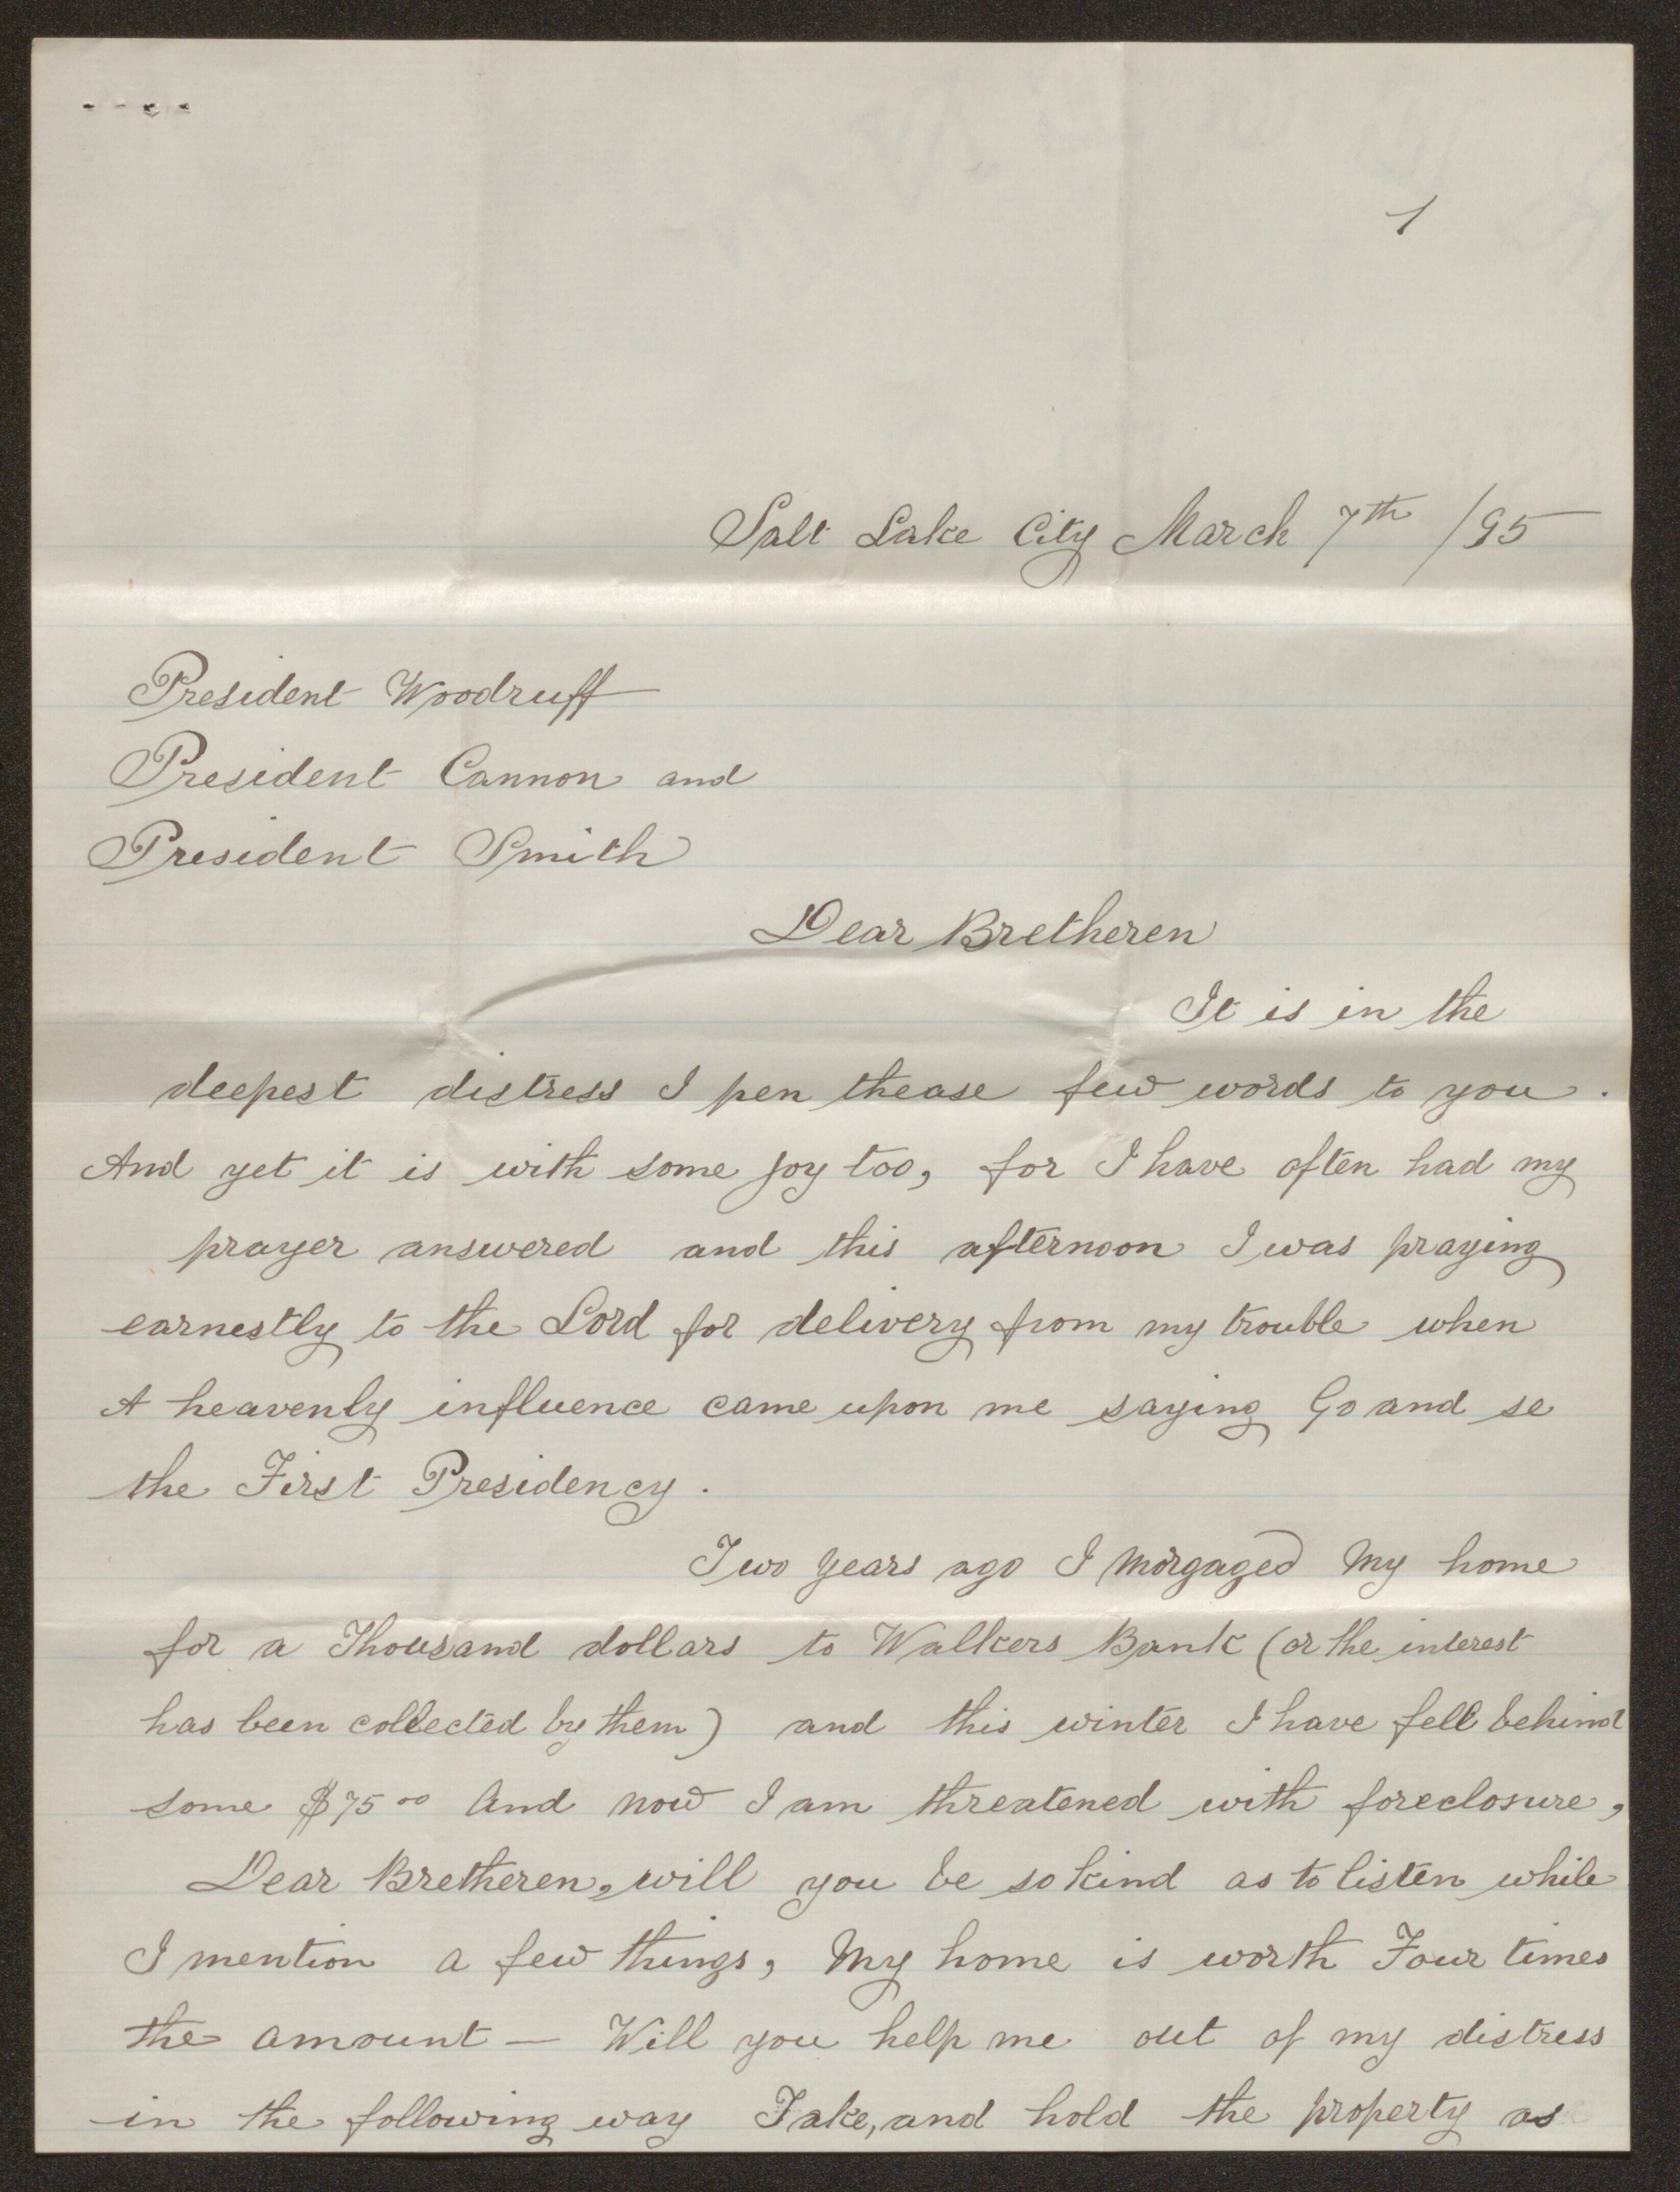 1
Salt Lake City March 7th /95
President Woodruff
President Cannon and
President Smith
Dear Bretheren
It is in the
deepest distress I pen thease few words to you.
And yet it is with some joy too, for I have often had my
prayer answered and this afternoon I was praying
earnestly to the Lord for delivery from my trouble when
A heavenly influence came upon me saying Go and se
the First Presidency.
Two years ago I Morgaged My home
for a Thousand dollars to Walkers Bank (or the interest
has been collected by them) and this winter I have fell behind
some $75 00 And now I am threatened with foreclosure,
Dear Bretheren, will you be so kind as to listen while
I mention a few things, My home is worth Four times
the amount — Will you help me out of my distress
in the following way Take, and hold the property as